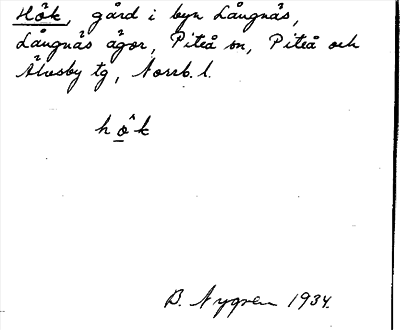 Hök, gård i byn Långnäs,
Långnäs ägor, Piteå sn, Piteå och
Älvsby tg, Norrb. l.
hǫ̂k
B. Nygren 1934.